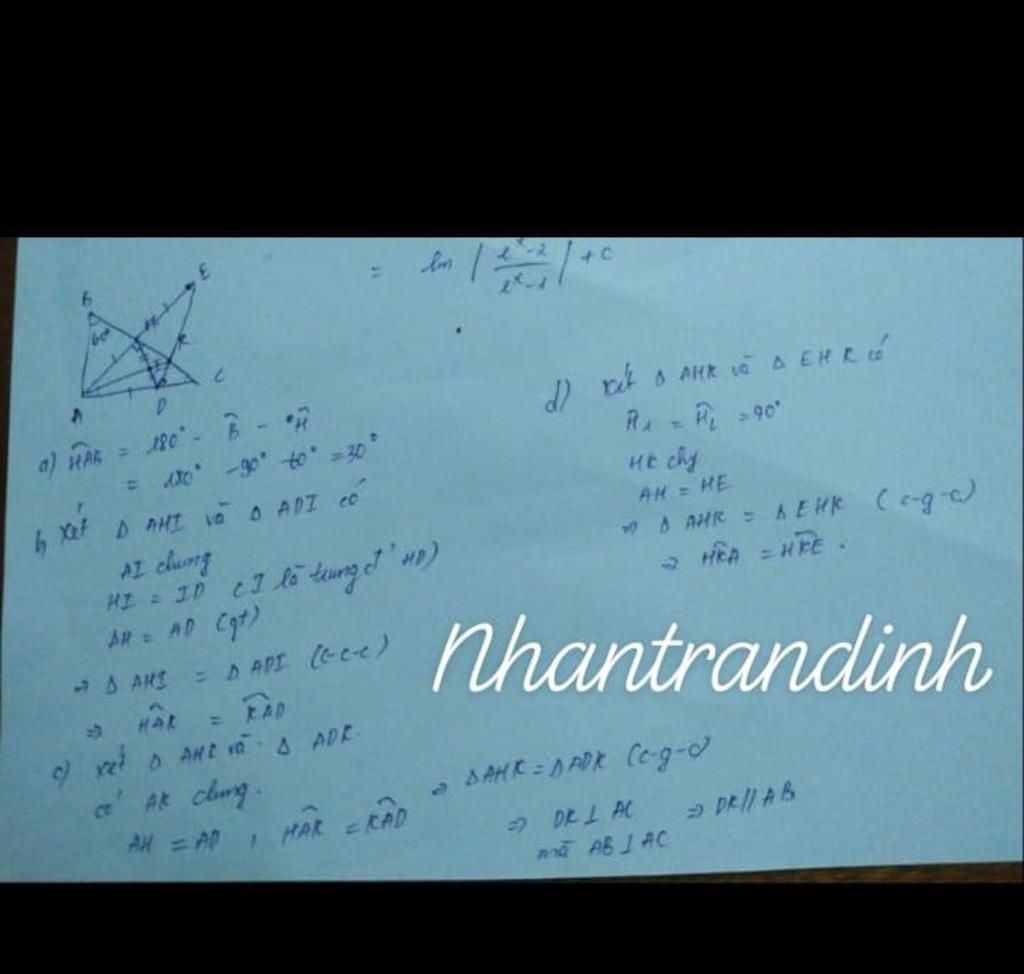 = ln | e^x-2 / e^x-1 | + C
B
E
60°
H
K
I
A
D
C
a) HAB = 180° - B - H
= 180° - 90° - 60° = 30°
b, Xét Δ AHI và Δ ADI có
AI chung
HI = ID (I là trung đ' HD)
AH = AD (gt)
⇒ Δ AHI = Δ ADI (c-c-c)
⇒ HAK = KAD
c) Xét Δ AHK và Δ ADK.
có AK chung.
AH = AD , HAK = KAD
⇒ ΔAHK = ΔADK (c-g-c)
⇒ DK ⊥ AC ⇒ DK // AB
mà AB ⊥ AC
d) Xét Δ AHK và Δ EHK có
H1 = H2 = 90°
HK chg
AH = HE
⇒ Δ AHK = Δ EHK (c-g-c)
⇒ HKA = HKE .
Nhantrandinh